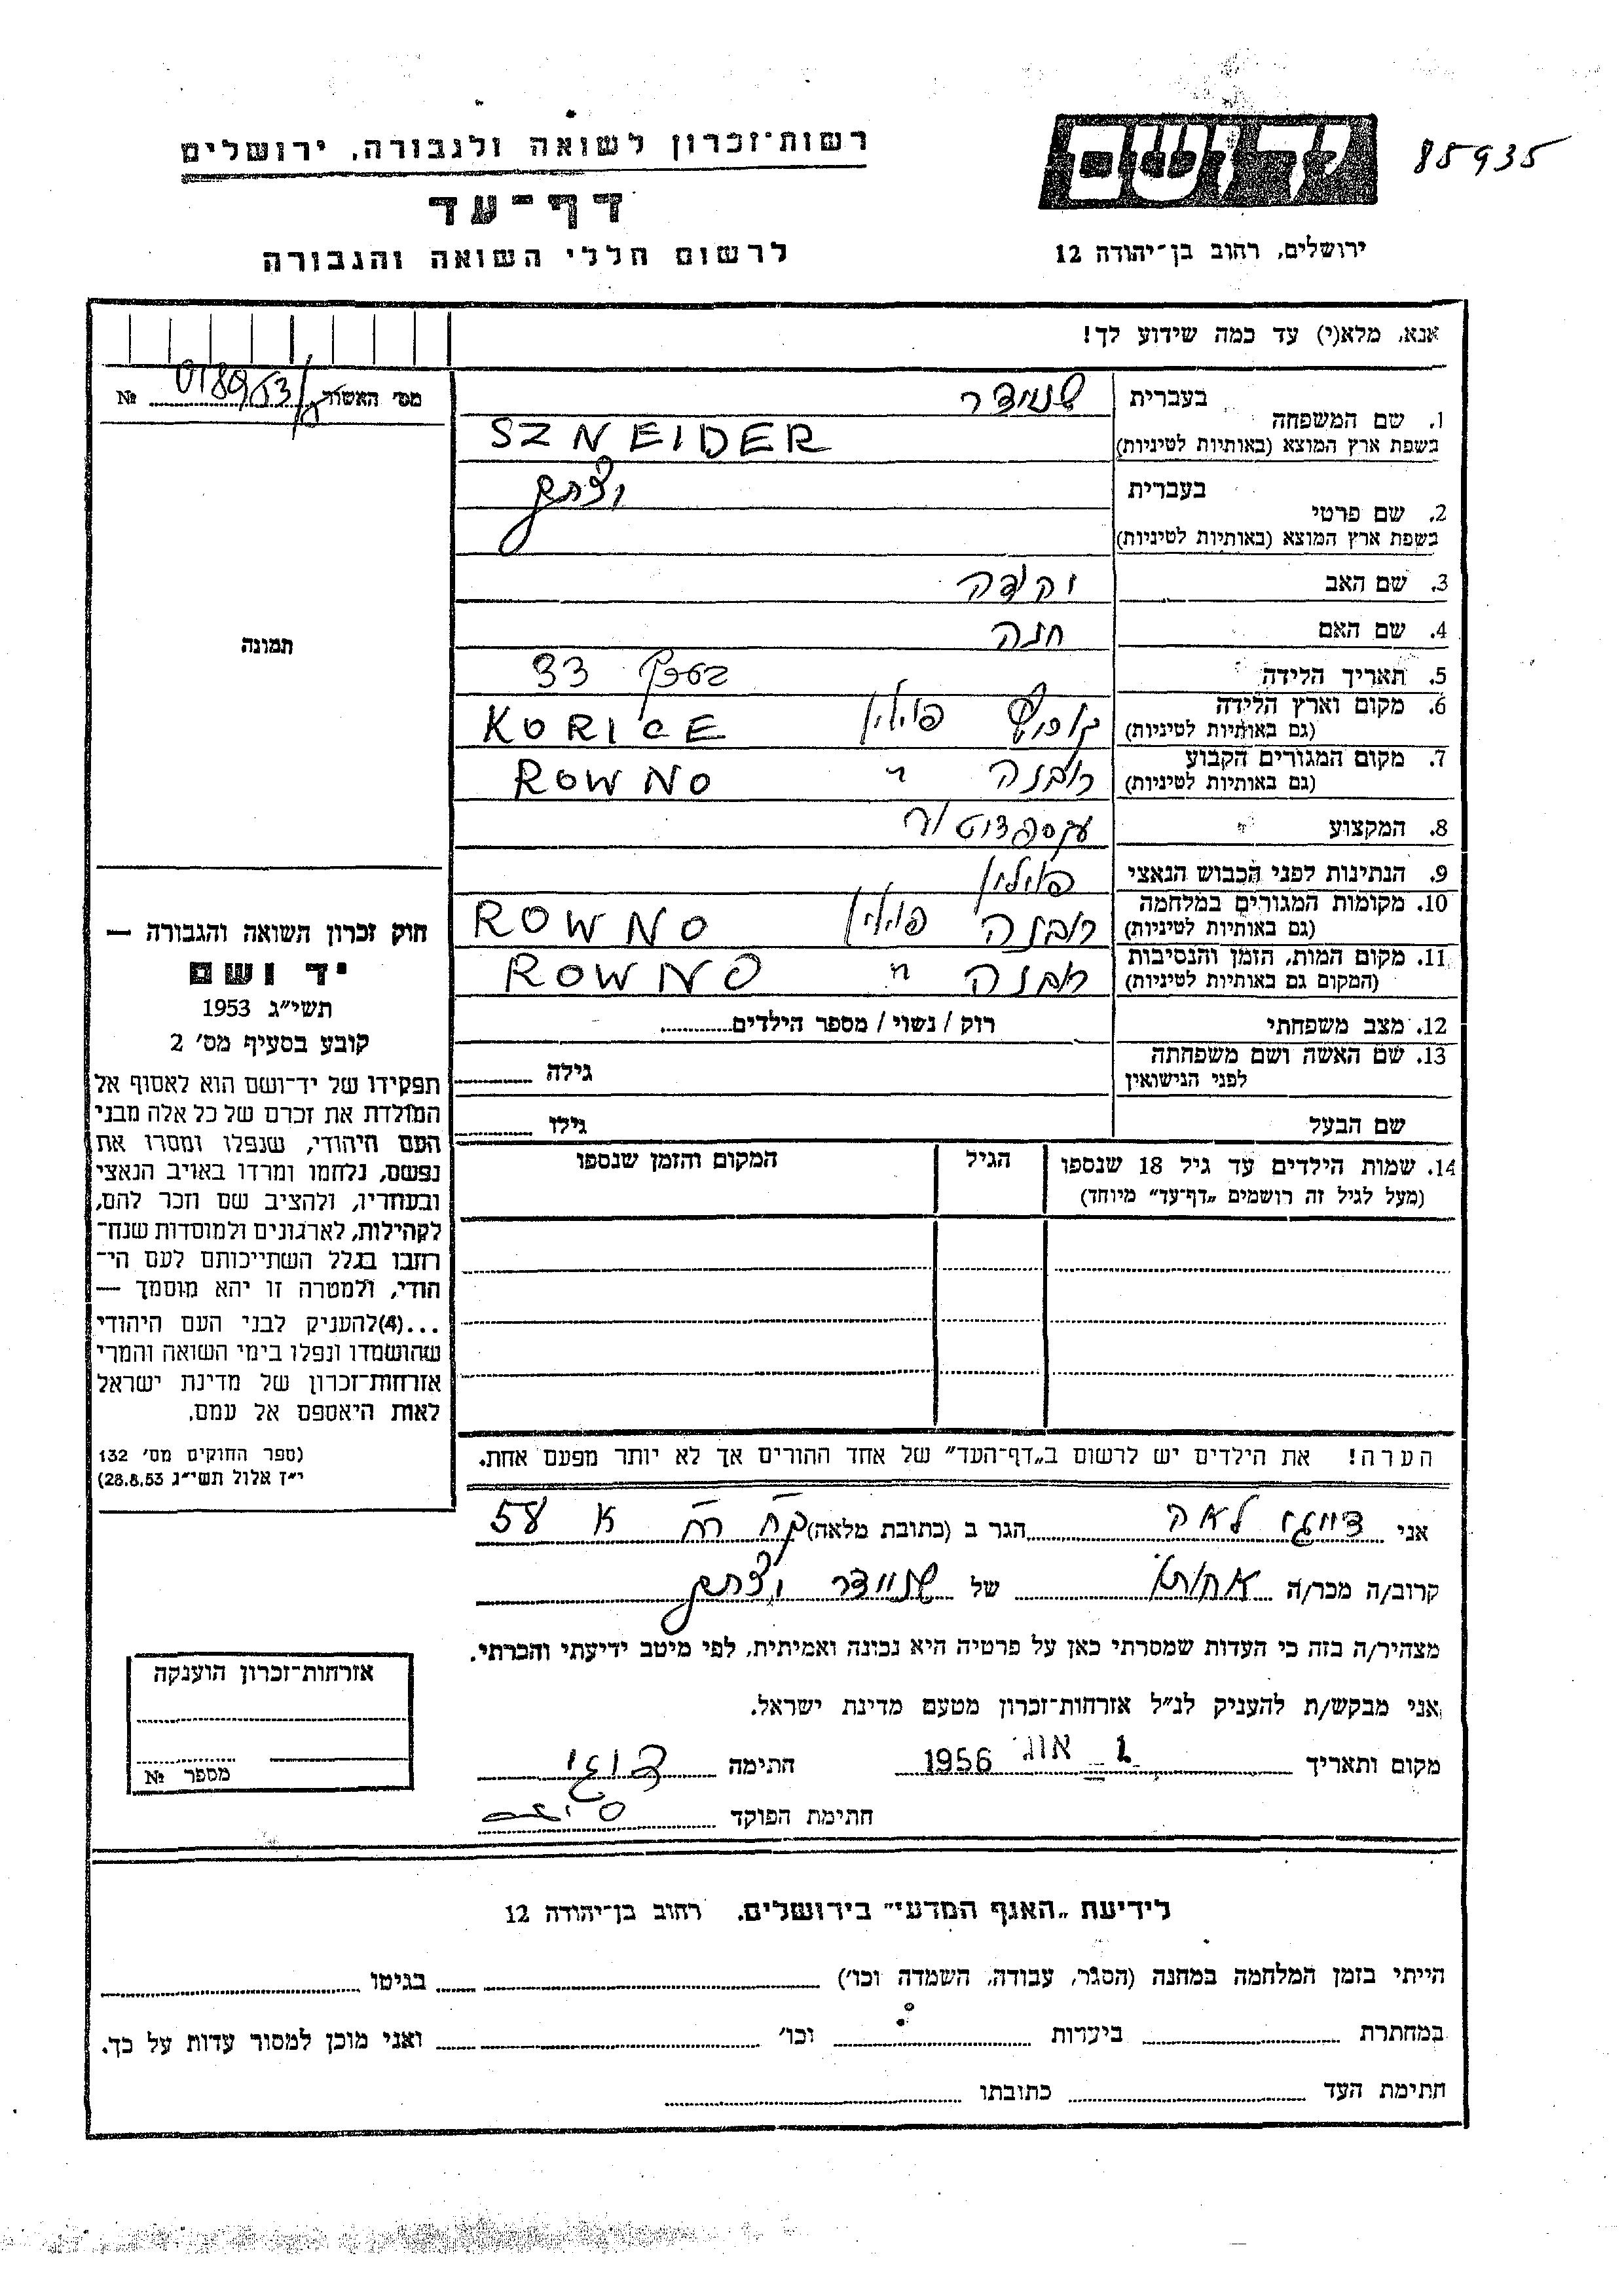 רשות־זכרון לשואה ולגבורה, ירושלים
דף־עד
לרשום חללי השואה והגבורה
יד ושם
85935
ירושלים, רחוב בן־יהודה 12
אנא, מלא(י) עד כמה שידוע לך!
מס׳ האשור №
1. שם המשפחה
בעברית שניידר
בשפת ארץ המוצא (באותיות לטיניות) SZNEIDER
2. שם פרטי
בעברית יצחק
בשפת ארץ המוצא (באותיות לטיניות)
3. שם האב
4. שם האם חנה
5. תאריך הלידה 33
6. מקום וארץ הלידה
(גם באותיות לטיניות) פולין KORICE
7. מקום המגורים הקבוע
(גם באותיות לטיניות) רובנה " ROWNO
8. המקצוע
9. הנתינות לפני הכבוש הנאצי פולין
10. מקומות המגורים במלחמה
(גם באותיות לטיניות) רובנה פולין ROWNO
11. מקום המות, הזמן והנסיבות
(המקום גם באותיות לטיניות) רובנה " ROWNO
12. מצב משפחתי רוק / נשוי / מספר הילדים
13. שם האשה ושם משפחתה
לפני הנישואין גילה
שם הבעל גילו
14. שמות הילדים עד גיל 18 שנספו הגיל המקום והזמן שנספו
(מעל לגיל זה רושמים „דף־עד״ מיוחד)
תמונה
חוק זכרון השואה והגבורה —
יד ושם
תשי״ג 1953
קובע בסעיף מס׳ 2
תפקידו של יד־ושם הוא לאסוף אל
המולדת את זכרם של כל אלה מבני
העם היהודי, שנפלו ומסרו את
נפשם, נלחמו ומרדו באויב הנאצי
ובעוזריו, ולהציב שם וזכר להם,
לקהילות, לארגונים ולמוסדות שנח־
רבו בגלל השתייכותם לעם הי־
הודי, ולמטרה זו יהא מוסמך —
...(4)להעניק לבני העם היהודי
שהושמדו ונפלו בימי השואה והמרי
אזרחות־זכרון של מדינת ישראל
לאות היאספם אל עמם.
(ספר החוקים מס׳ 132
י״ז אלול תשי״ג 28.8.53)
הערה! את הילדים יש לרשום ב„דף־העד״ של אחד ההורים אך לא יותר מפעם אחת.
אני לאה הגר ב (כתובת מלאה) 58
קרוב/ה מכר/ה אחותו של שניידר יצחק
מצהיר/ה בזה כי העדות שמסרתי כאן על פרטיה היא נכונה ואמיתית, לפי מיטב ידיעתי והכרתי.
אני מבקש/ת להעניק לנ״ל אזרחות־זכרון מטעם מדינת ישראל.
מקום ותאריך 1 אוג׳ 1956 חתימה
חתימת הפוקד
אזרחות־זכרון הוענקה
מספר №
לידיעת „האגף המדעי״ בירושלים, רחוב בן־יהודה 12
הייתי בזמן המלחמה במחנה (הסגר, עבודה, השמדה וכו׳) בגיטו
במחתרת ביערות וכו׳ ואני מוכן למסור עדות על כך.
חתימת העד כתובתו